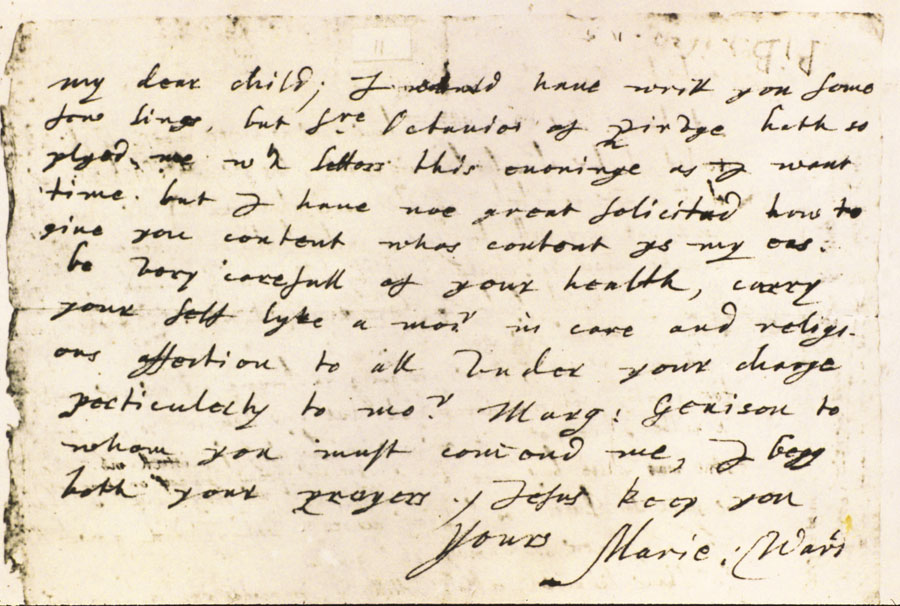 my dear child; I would have writt you some
few lings, but Sre Octavios of Pirdge hath so
plyed me wth letters this eveninge as I want
time. but I have noe great solicitud how to
give you content whos content ys my eas.
be Very carefull of your health, carry
your self lyke a mor in care and religi-
ous affection to all Under your charge
perticulerly to mor Marg: Genison to
whom you must comend me, I begg
both your prayers, Jesus keep you
Yours Marie: Ward